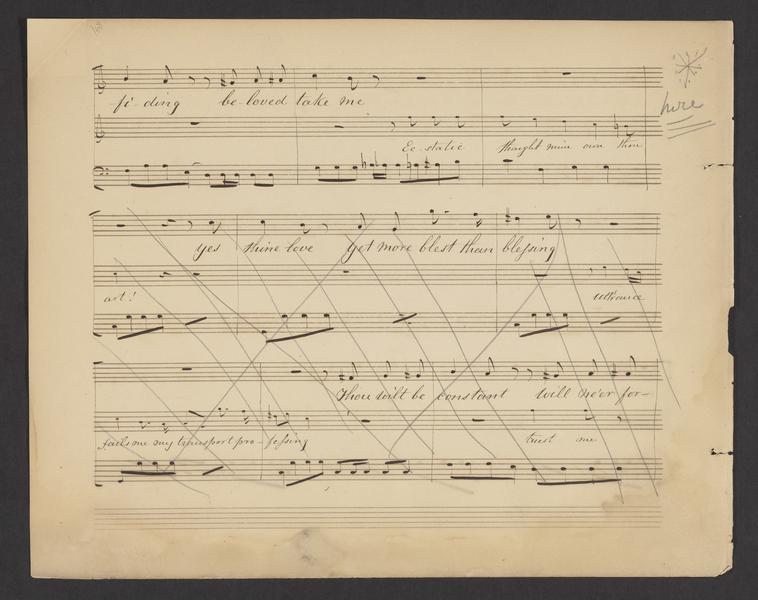 fi ding be-loved take me
here
Ec-static thought mine own thou
yes thine love yet more blest than blessing
art! utterance
Thou wilt be constant will ne'er for-
fails me my transport pro-fessing trust me